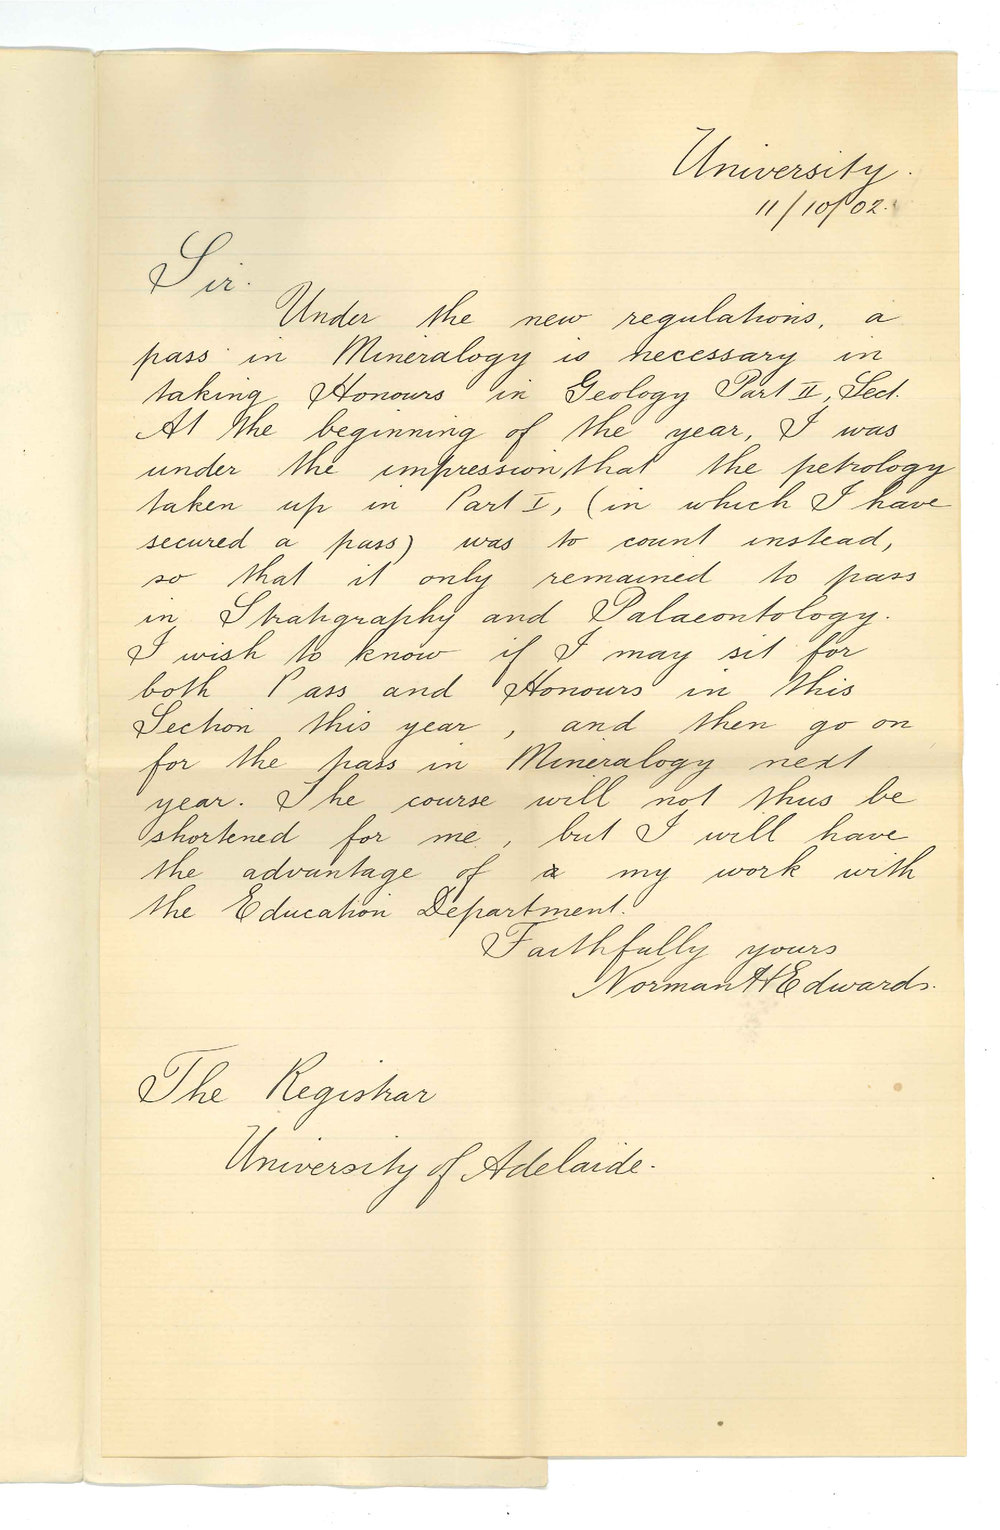 University.
11/10/02.
Sir.
Under the new regulations, a
pass in Mineralogy is necessary in
taking Honours in Geology Part II, Sect.
At the beginning of the year, I was
under the impression that the petrology
taken up in Part I, (in which I have
secured a pass) was to count instead,
so that it only remained to pass
in Stratigraphy and Palaeontology.
I wish to know if I may sit for
both Pass and Honours in this
Section this year, and then go on
for the pass in Mineralogy next
year. The course will not thus be
shortened for me, but I will have
the advantage of my work with
the Education Department.
Faithfully yours
Norman H Edwards.
The Registrar
University of Adelaide.